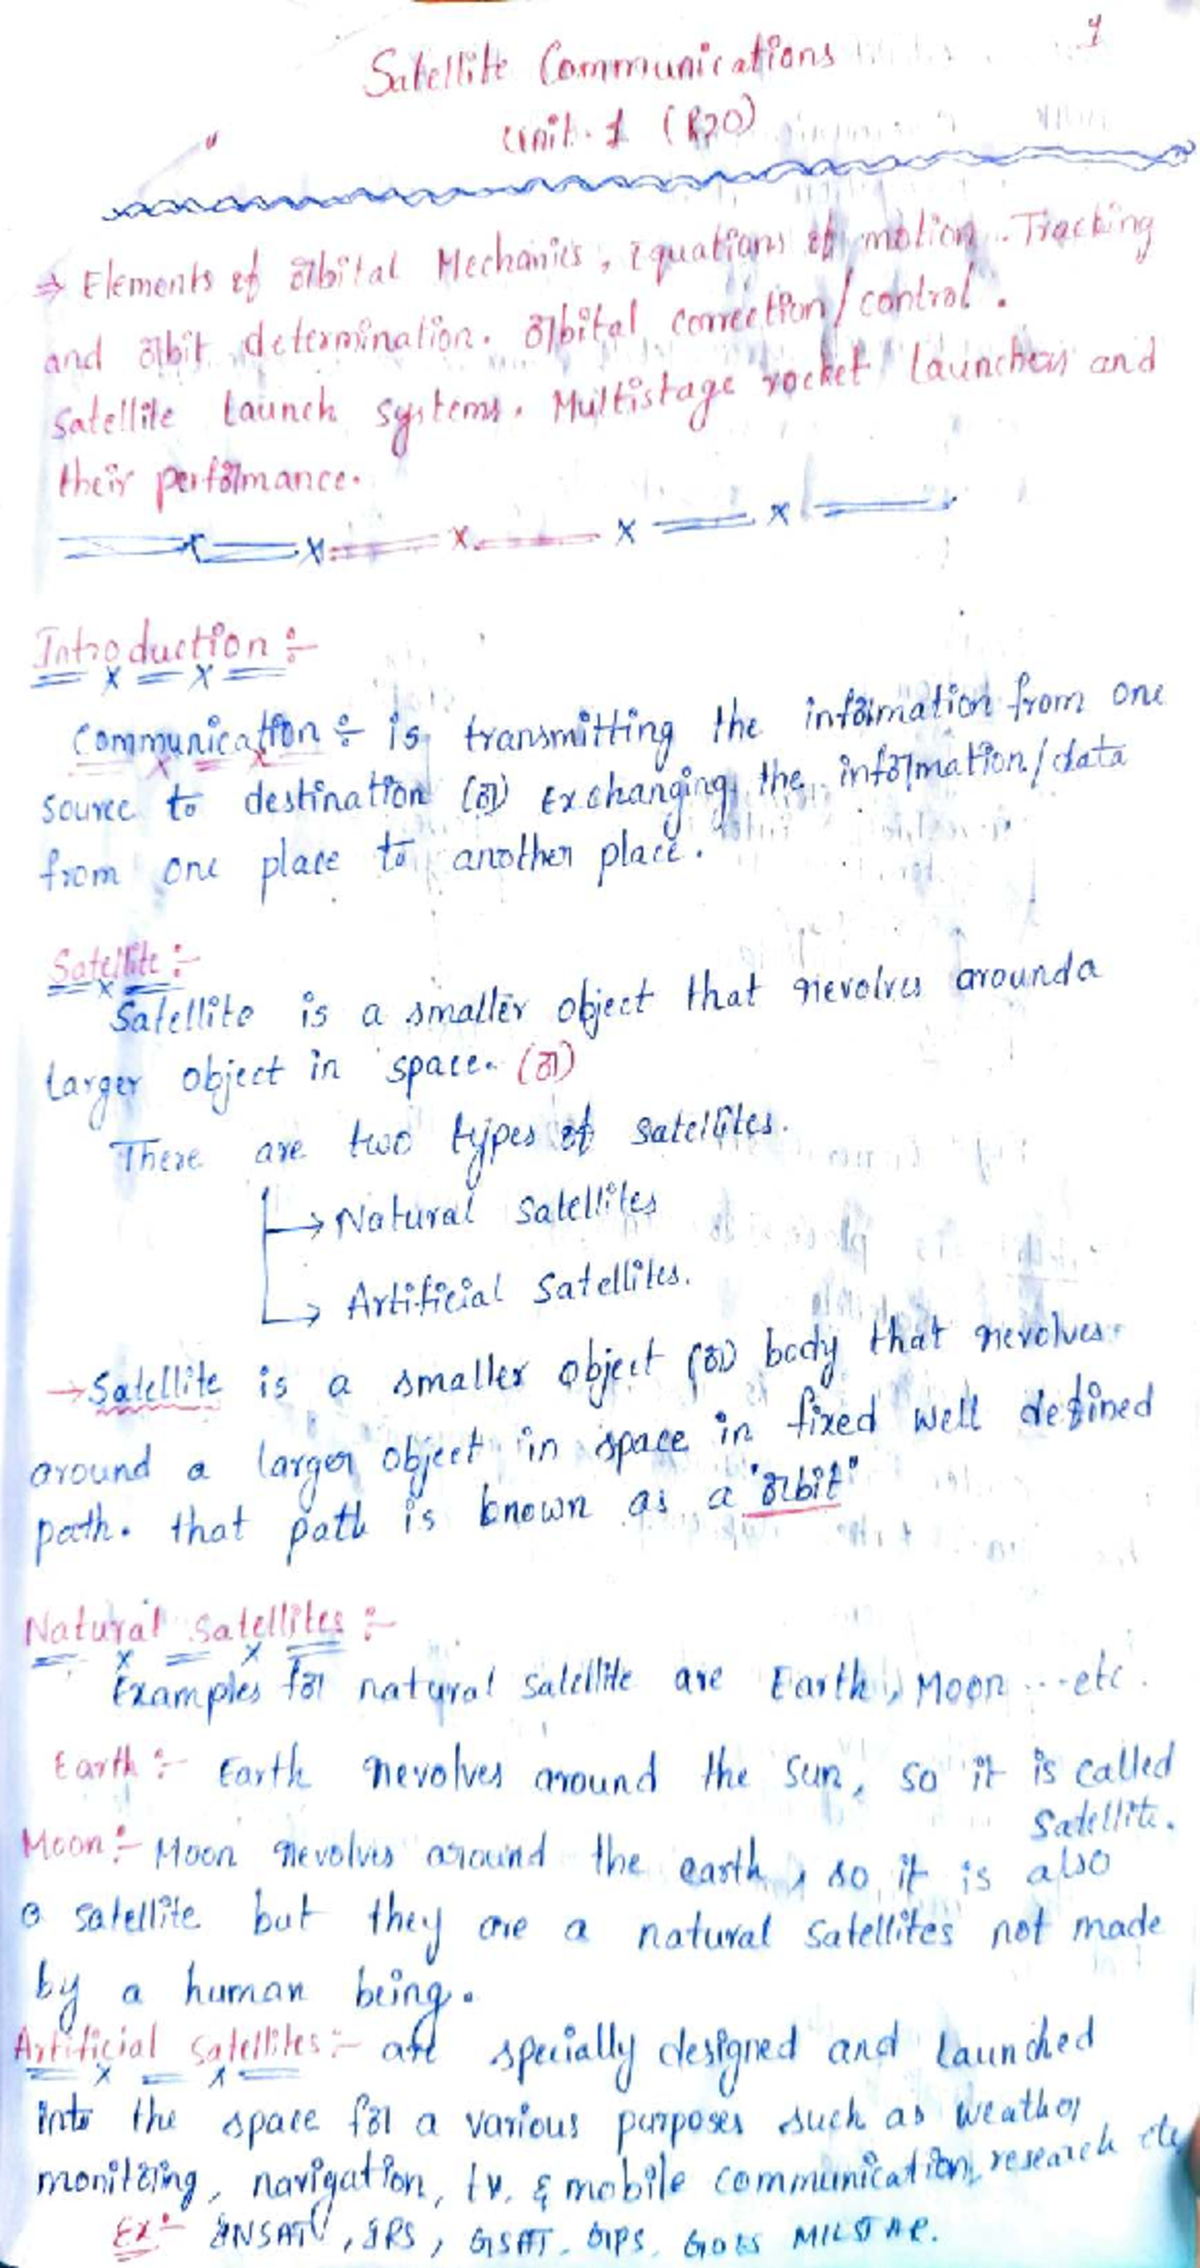 1
Satellite Communications
Unit-1 (R20)
⇒ Elements of orbital Mechanics, Equations of motion. Tracking
and orbit determination. orbital correction/control.
Satellite launch systems. Multistage rocket launchers and
their performance.
Introduction :-
Communication ÷ is transmitting the information from one
source to destination (or) Exchanging the information/data
from one place to another place.
Satellite :-
Satellite is a smaller object that revolves around a
larger object in space. (or)
There are two types of satellites.
→ Natural satellites
→ Artificial satellites.
→ Satellite is a smaller object (or) body that revolves
around a larger object in space in fixed well defined
path. that path is known as a "orbit"
Natural satellites :-
Examples for natural satellite are Earth, Moon ...etc.
Earth :- Earth revolves around the sun, so it is called
satellite.
Moon :- Moon revolves around the earth, so it is also
a satellite but they are a natural satellites not made
by a human being.
Artificial satellites :- are specially designed and launched
into the space for a various purposes such as weather
monitoring, navigation, tv. & mobile communication, research etc
Ex :- INSAT, IRS, GSAT, GPS, GOES MILSTAR.